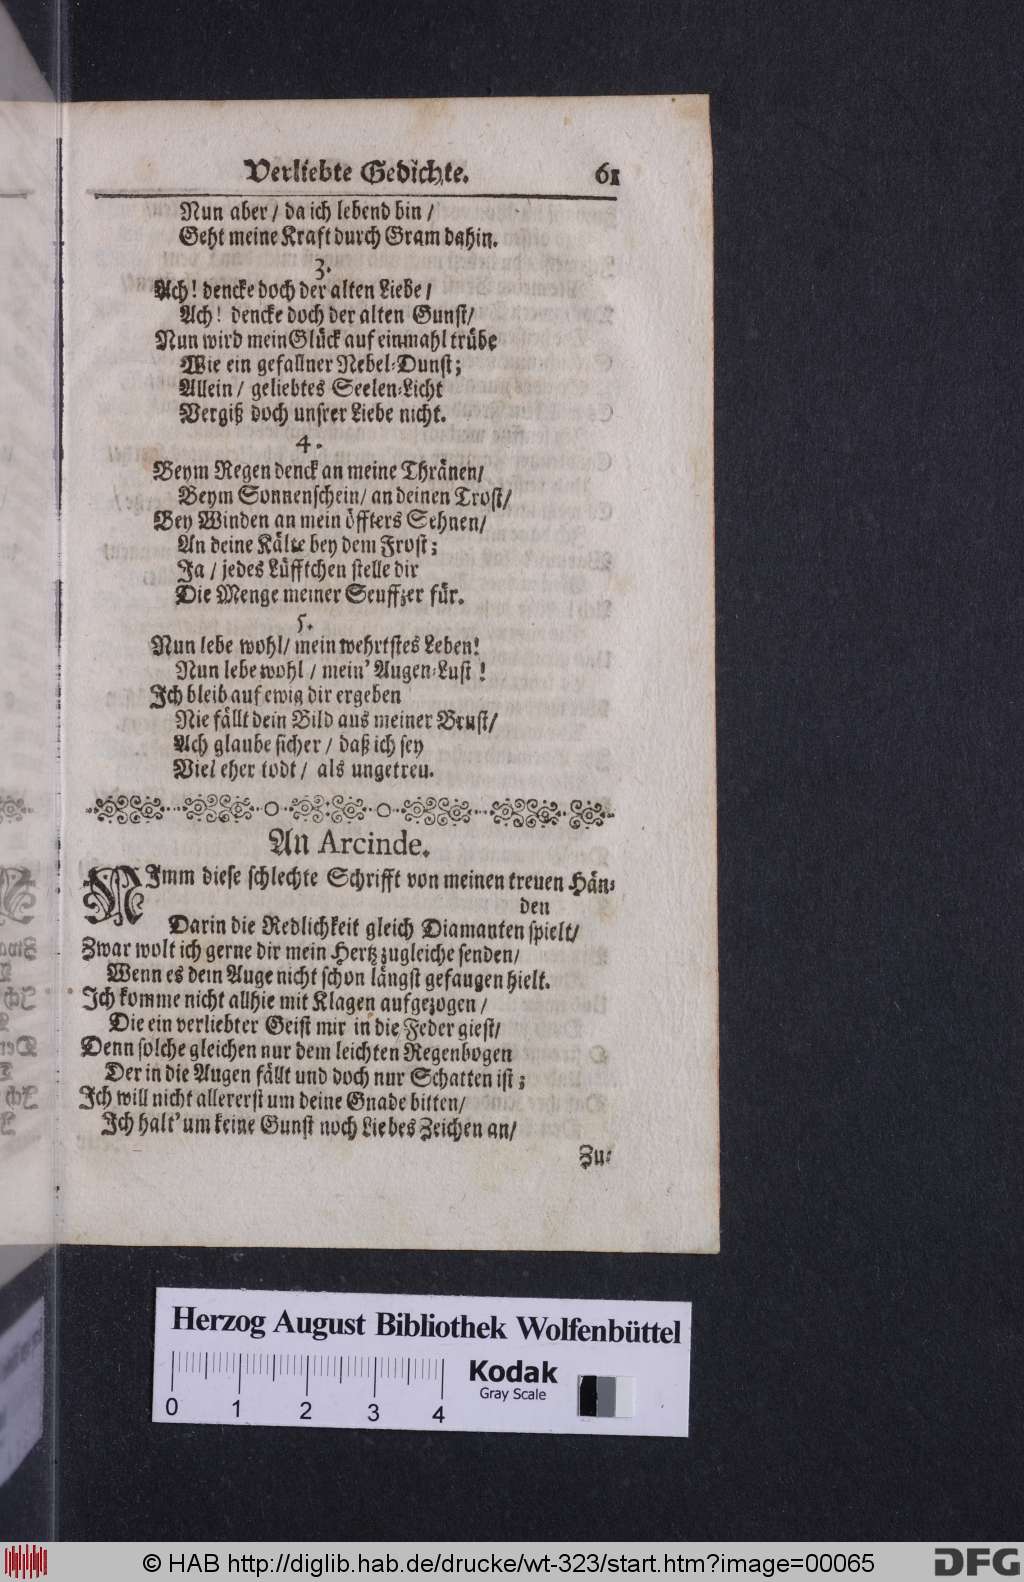 Verliebte Gedichte. 61
Nun aber / da ich lebend bin /
Geht meine Kraft durch Gram dahin.
3.
Ach! dencke doch der alten Liebe /
Ach! dencke doch der alten Gunst /
Nun wird mein Glück auf einmahl trübe
Wie ein gefallner Nebel-Dunst;
Allein / geliebtes Seelen-Licht
Vergiß doch unsrer Liebe nicht.
4.
Beym Regen denck an meine Thränen /
Beym Sonnenschein / an deinen Trost /
Bey Winden an mein öffters Sehnen /
An deine Kälte bey dem Frost;
Ja / jedes Lüfftchen stelle dir
Die Menge meiner Seuffzer für.
5.
Nun lebe wohl / mein wehrtstes Leben!
Nun lebe wohl / mein' Augen-Lust!
Ich bleib auf ewig dir ergeben
Nie fällt dein Bild aus meiner Brust /
Ach glaube sicher / daß ich sey
Viel eher todt / als ungetreu.
An Arcinde.
NImm diese schlechte Schrifft von meinen treuen Hän-
den
Darin die Redlichkeit gleich Diamanten spielt /
Zwar wolt ich gerne dir mein Hertz zugleiche senden /
Wenn es dein Auge nicht schon längst gefangen hielt.
Ich komme nicht allhie mit Klagen aufgezogen /
Die ein verliebter Geist mir in die Feder giest /
Denn solche gleichen nur dem leichten Regenbogen
Der in die Augen fällt und doch nur Schatten ist;
Ich will nicht allererst um deine Gnade bitten /
Ich halt' um keine Gunst noch Liebes Zeichen an /
Zu-
Herzog August Bibliothek Wolfenbüttel
Kodak
Gray Scale
0 1 2 3 4
© HAB http://diglib.hab.de/drucke/wt-323/start.htm?image=00065
DFG